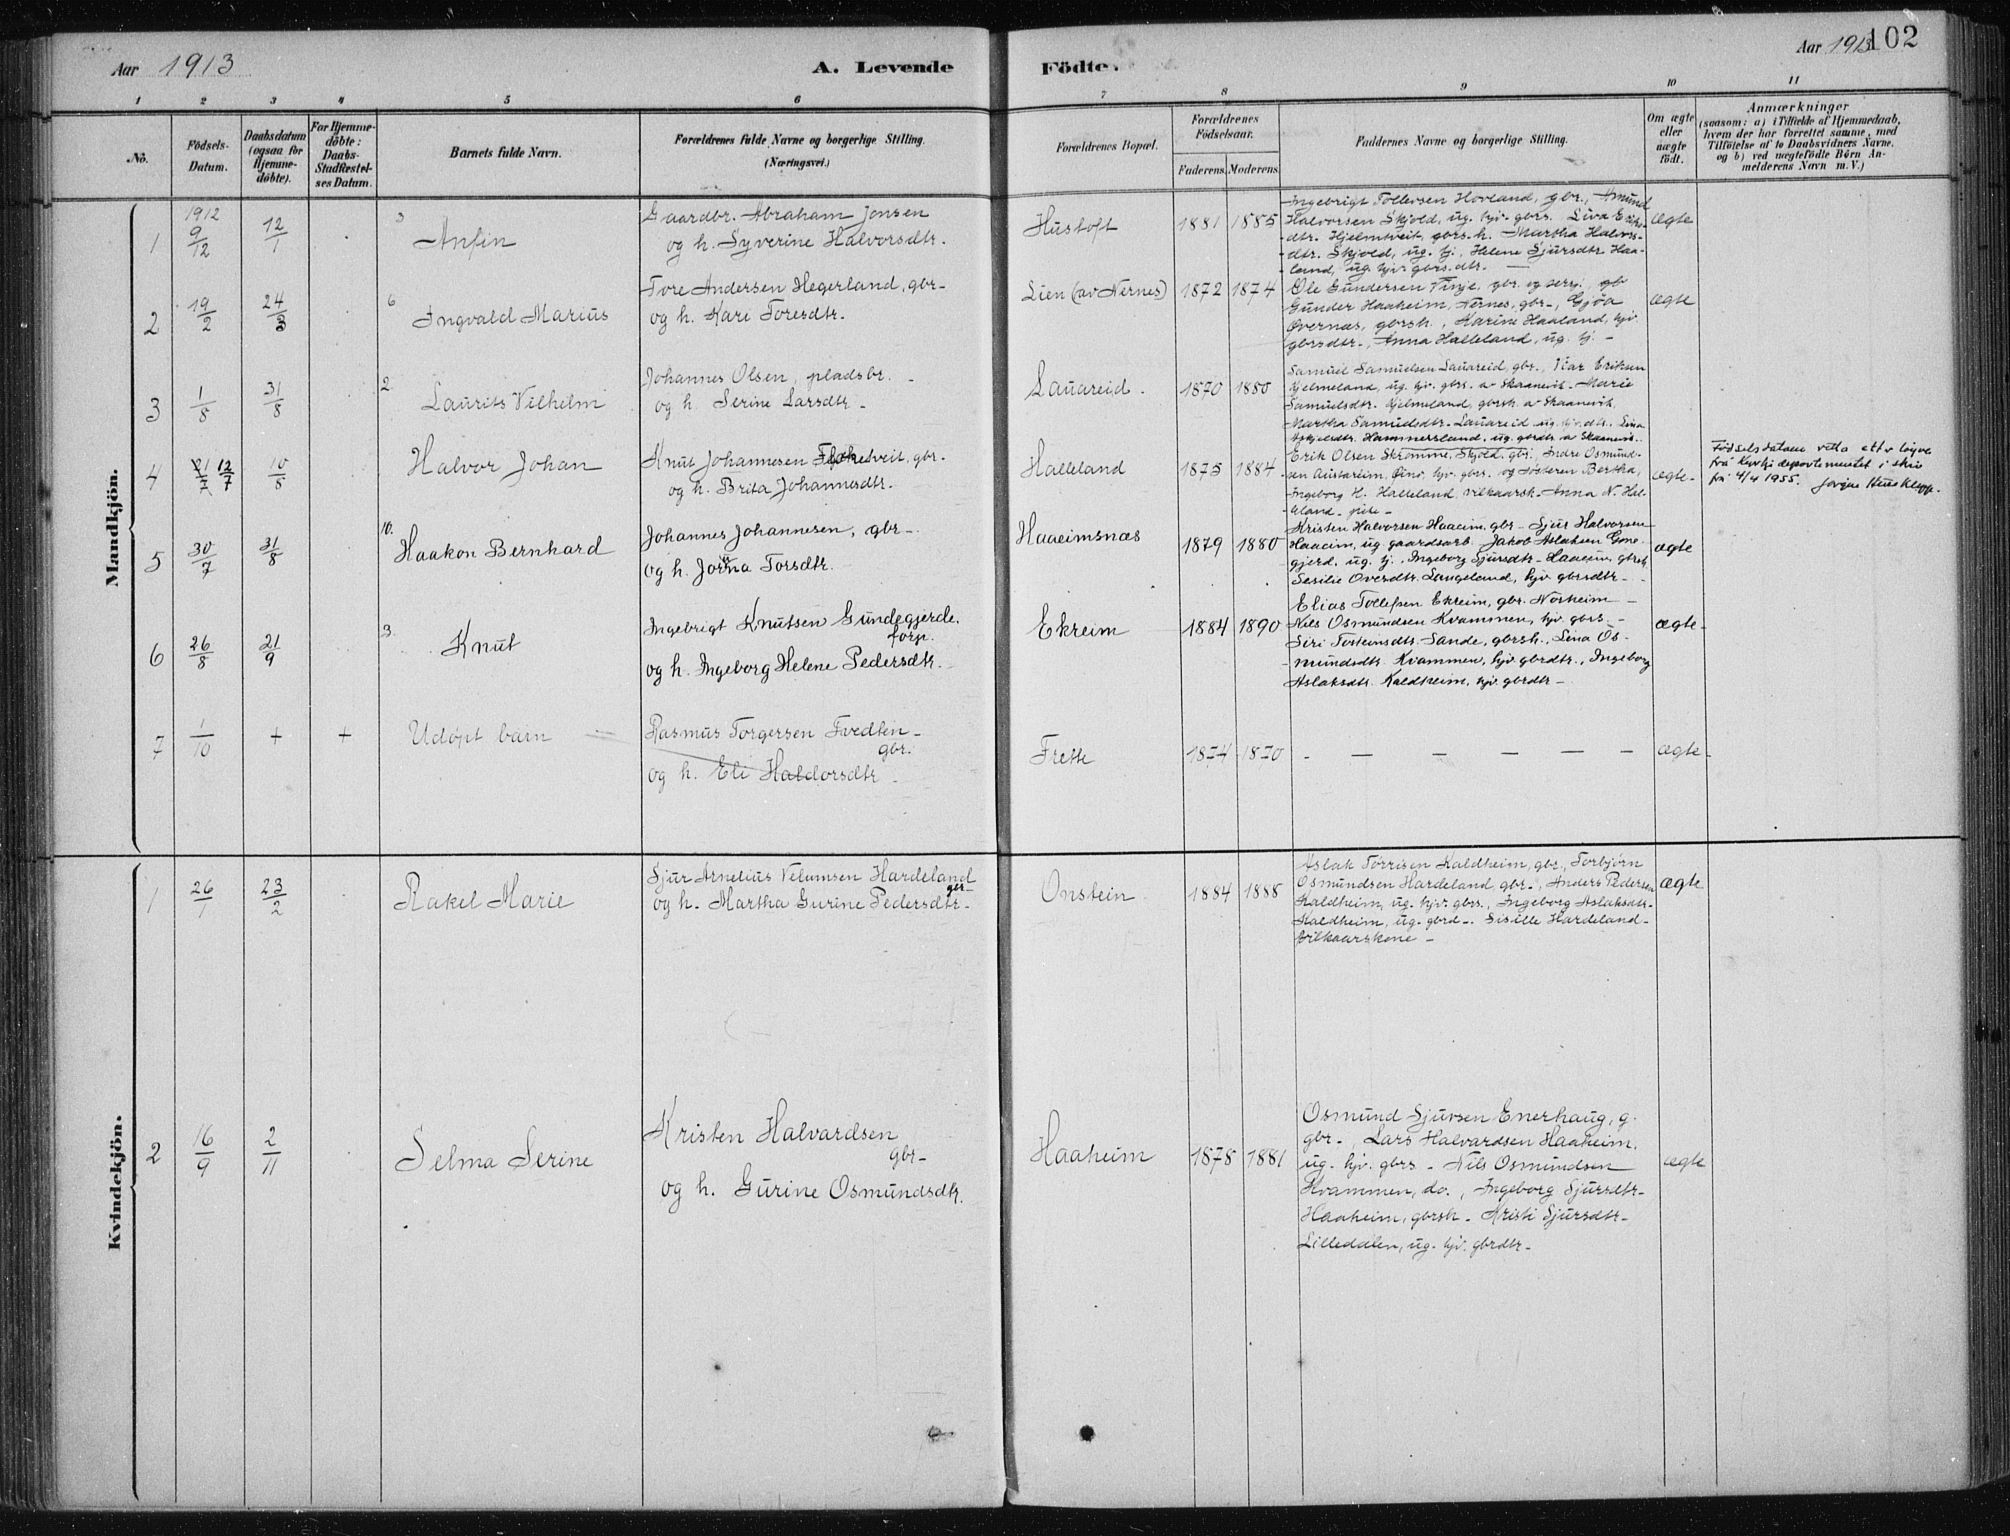 Aar 1913
A. Levende
Födte.
Aar 1913
102
1 2 3 4 5 6 7 8 9 10 11
No.
Födsels-Datum.
Daabsdatum (ogsaa for Hjemme-döbte).
For Hjemme-döbte: Daabs-Stadfæstel-ses Datum.
Barnets fulde Navn.
Forældrenes fulde Navne og borgerlige Stilling.
(Næringsvei.)
Forældrenes Bopæl.
Forældrenes Födselsaar.
Faderens. Moderens.
Faddernes Navne og borgerlige Stilling.
Om ægte eller uægte födt.
Anmærkninger
(saasom: a) i Tilfælde af Hjemmedaab,
hvem der har forrettet samme, med
Tilföielse af to Daabsvidners Navne,
og b) ved uægtefödte Börn An-
melderens Navn m. V.)
Mandkjön.
1 1912 9/12 12/1 3 Anfin
Gaardbr. Abraham Jonsen
og h. Syverine Halvorsdtr.
Hustoft 1881 1885
Ingebrigt Tollevsen Hovland, gbr., Amund
Halvorsen Skjold, ug. hjv. gbrs. Liva Eriks-
dtr. Hjelmtveit, gbrs.h. Martha Halvors-
dtr. Skjold, ug. tj., Helene Sjursdtr. Haa-
land, ug. hjv. gbrs.dtr.
ægte
2 19/2 24/3 6 Ingvald Marius
Tore Andersen Hegerland, gbr-
og h. Kari Toresdtr.
Lien (av Nernes) 1872 1874
Ole Gundersen Vinje, gbr. og serj., gb
Gunder Haaheim, Nernes, gbr., Gjöa
Övernæs, gbrsh., Marine Haaland, hjv.
gbrsdtr., Anna Halleland, ug. tj.
ægte
3 1/8 31/8 2 Laurits Vilhelm
Johannes Olsen, pladsbr.
og h. Serine Larsdtr.
Lauareid. 1870 1880
Samuel Samuelsen Lauareid, gbr., Ivar Eriksen
Hjelmeland, ug. hjv. gbrs. av Skaanevik. Marie
Samuelsdtr. Hjelmeland, gbrsh. av Skaanevik,
Martha Samuelsdtr. Lauareid ug. hjv. dtr., Lina
Hammersland, ug. gbrdtr. a Skaanevik.
4 21/7 12/7 10/8 Halvor Johan
Knut Johannesen tveit, gbr.
og h. Brita Johannesdtr.
Halleland 1875 1884
Erik Olsen Skromme, Skjold, gbr., Endre Osmund-
sen Austarheim, Ölve, hjv. gbrs. og søsteren Bertha,
Ingeborg H. Halleland, vilkaarsk. Anna N. Hal-
leland, pike
ægte
Födselsdatoen retta etter löyve
frå Kyrkjedepartementet i skriv
frå 4/4 1955.
5 30/7 31/8 10. Haakon Bernhard
Johannes Johannesen, gbr-
og h. Jorina Torsdtr.
Haaeimsnæs 1879 1880
Kristen Halvorsen Haaeim, gbr. Sjur Halvorsen
Haaeim, ug. gaardsarb. Jakob Aslaksen
gjerd, ug. tj., Ingeborg Sjursdtr. Haaeim, gbrsh
Sesilie Oversdtr. Langeland, hjv. gbrsdtr.
ægte
6 26/8 21/9 3. Knut
Ingebrigt Knutsen Gundegjerde.
forp.
og h. Ingeborg Helene Pedersdtr.
Ekreim 1884 1890
Elias Tollefsen Ekreim, gbr. Norheim
Nils Osmundsen Kvammen, hjv. gbrs.
Siri Torsteinsdtr. Sande, gbrsh., Lina Os-
mundsdtr. Kvammen, hjv. gbrdtr., Ingeborg
Aslaksdtr. Kaldheim, hjv. gbrdtr.
ægte
7 1/10 + + Udöpt barn
Rasmus Torgersen Tvedten
gbr.
og h. Eli Haldorsdtr
Frette 1874 1870 - - - - - - ægte
Kvindekjön.
1 26/1 23/2 Rakel Marie
Sjur Arnelius Velumsen Hardeland
gbr-
og h. Martha Gurine Pedersdtr.
Onstein 1884 1888
Aslak Torrisen Kaldheim, gbr., Torbjörn
Osmundsen Hardeland gbr., Anders Pedersen
Kaldheim, ug. hjv. gbrs., Ingeborg Aslaksdtr.
Kaldheim, ug. gbrd. Sisille Hardeland
vilkaarskone
ægte
2 16/9 2/11 Selma Serine
Kristen Halvardsen
gbr-
og h. Gurine Osmundsdtr.
Haaheim 1878 1881
Osmund Sjursen Enerhaug, g.
gbr., Lars Halvardsen Haaheim,
ug. hjv. gbrs. Nils Osmundsen
Kvammen, do., Ingeborg Sjursdtr.
Haaheim, gbrsh. Kristi Sjursdtr.
Lilledalen, ug. hjv. gbrdtr.
ægte